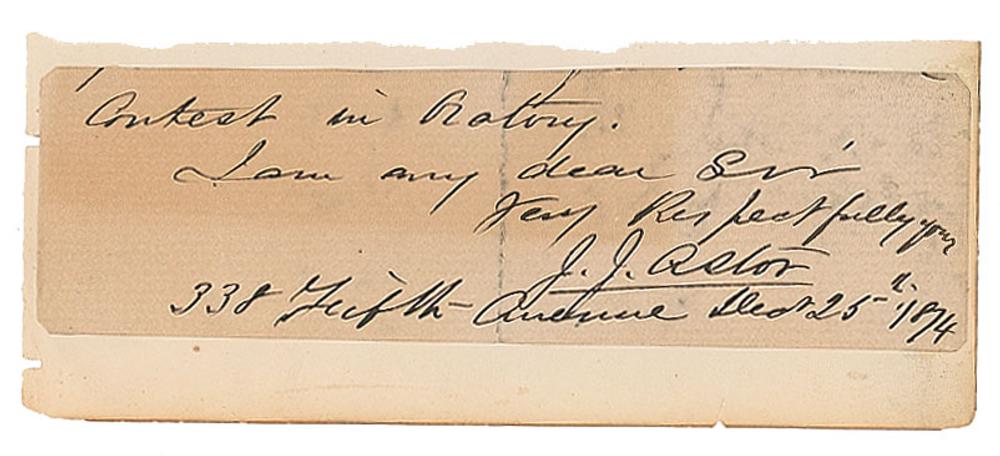 Contest in Oratory.
I am my dear Sir
Very Respectfully your
J. J. Astor
338 Fifth Avenue Dec 25" 1874